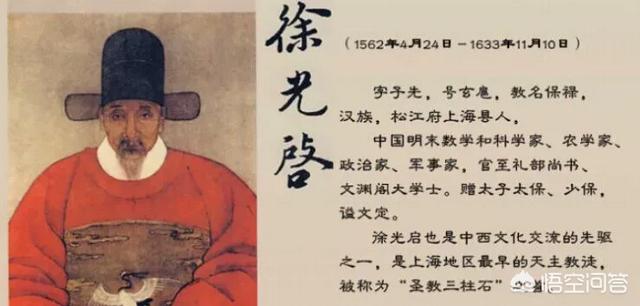 徐光啓
(1562年4月24日-1633年11月10日)
字子先,号玄扈,教名保禄,
汉族,松江府上海县人,
中国明末数学和科学家、农学家、
政治家、军事家,官至礼部尚书、
文渊阁大学士。赠太子太保、少保,
谥文定。
徐光启也是中西文化交流的先驱
之一,是上海地区最早的天主教徒,
被称为“圣教三柱石”
悟空问答